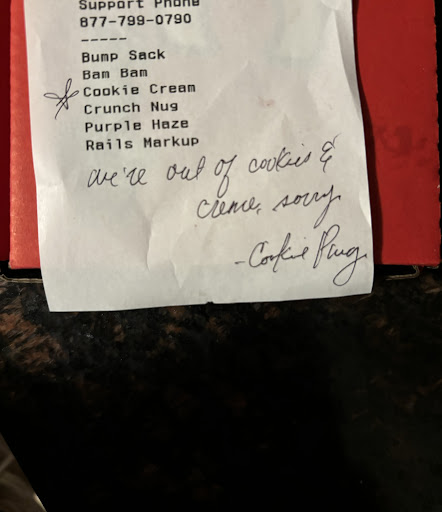 Support Phone
877-799-0790
-----
Bump Sack
Bam Bam
Cookie Cream
Crunch Nug
Purple Haze
Rails Markup
we're out of cookies &
creme, sorry
-Cookie Plug